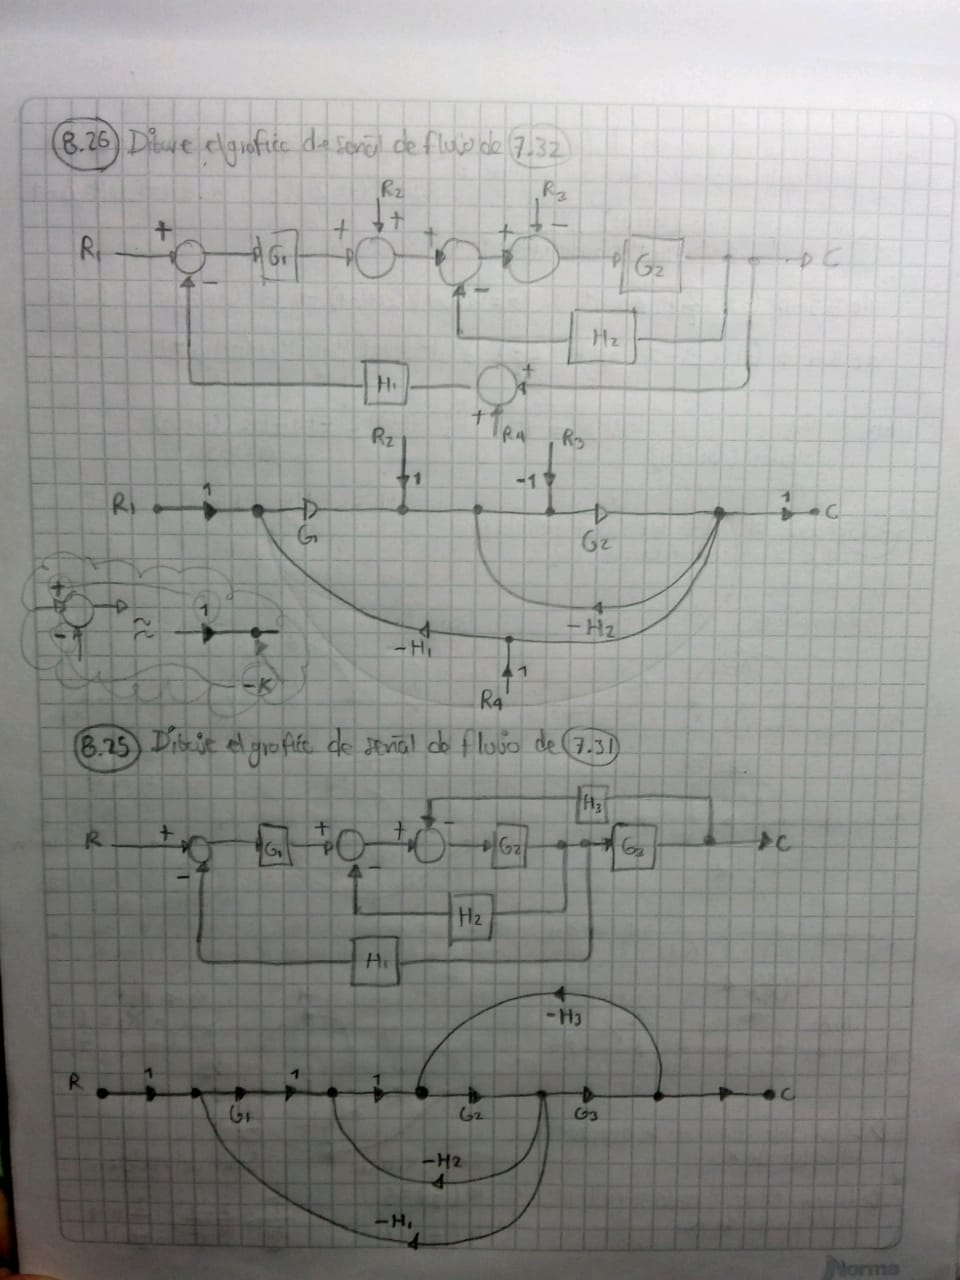 8.26 Dibuje el grafico de señal de flujo de 7.32
R2 R3
+ + + + + -
R1 G1 G2 C
- -
H2
H1 +
+ R4
R2 R3
1 -1
R1 1 G1 G2 1 C
+ - ≈ 1 -K
-H1 -H2
1
R4
8.25 Dibuje el grafico de señal de flujo de 7.31
H3
R + G1 + + - G2 G3 C
- -
H2
H1
-H3
R 1 G1 1 1 G2 G3 C
-H2
-H1
Norma